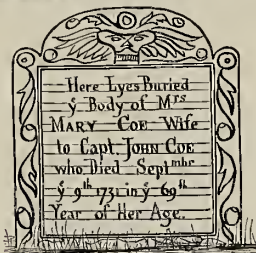 Here Lyes Buried
yͤ Body of Mʳˢ
MARY COE Wife
to Capt. JOHN COE
who Died Septᵐᵇʳ
yͤ 9ᵗʰ 1731 in yͤ 69ᵗʰ
Year of Her Age.